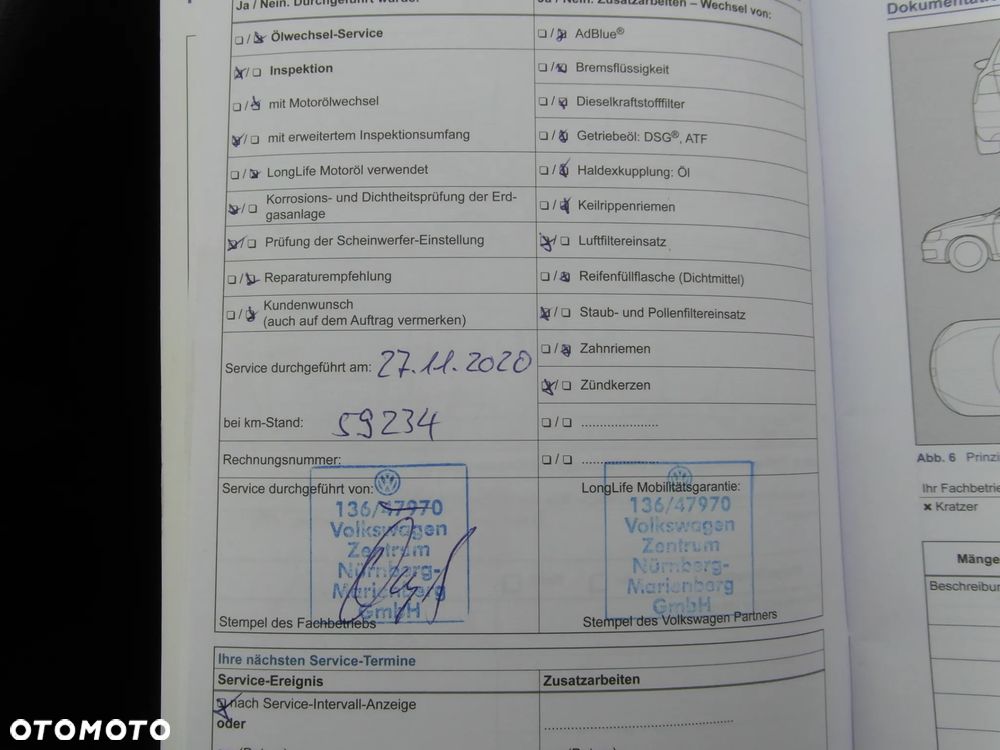 Ja / Nein. Durchgeführt wurde:
☐ / ☒ Ölwechsel-Service
☒ / ☐ Inspektion
☐ / ☒ mit Motorölwechsel
☒ / ☐ mit erweitertem Inspektionsumfang
☐ / ☒ LongLife Motoröl verwendet
☒ / ☐ Korrosions- und Dichtheitsprüfung der Erd-
gasanlage
☒ / ☐ Prüfung der Scheinwerfer-Einstellung
☐ / ☒ Reparaturempfehlung
☐ / ☒ Kundenwunsch
(auch auf dem Auftrag vermerken)
Service durchgeführt am: 27.11.2020
bei km-Stand: 59234
Rechnungsnummer:
Service durchgeführt von:
136/47970
Volkswagen
Zentrum
Nürnberg-
Marienberg
GmbH
Stempel des Fachbetriebs
Ja / Nein. Zusatzarbeiten – Wechsel von:
☐ / ☒ AdBlue®
☐ / ☒ Bremsflüssigkeit
☐ / ☒ Dieselkraftstofffilter
☐ / ☒ Getriebeöl: DSG®, ATF
☐ / ☒ Haldexkupplung: Öl
☐ / ☒ Keilrippenriemen
☒ / ☐ Luftfiltereinsatz
☐ / ☒ Reifenfüllflasche (Dichtmittel)
☒ / ☐ Staub- und Pollenfiltereinsatz
☐ / ☒ Zahnriemen
☒ / ☐ Zündkerzen
☐ / ☐ .....................
☐ / ☐ .....................
LongLife Mobilitätsgarantie:
136/47970
Volkswagen
Zentrum
Nürnberg-
Marienberg
GmbH
Stempel des Volkswagen Partners
Ihre nächsten Service-Termine
Service-Ereignis
☒ nach Service-Intervall-Anzeige
oder
Zusatzarbeiten
Dokumentati
Abb. 6 Prinzi
Ihr Fachbetrie
× Kratzer
Mänge
Beschreibun
OTOMOTO